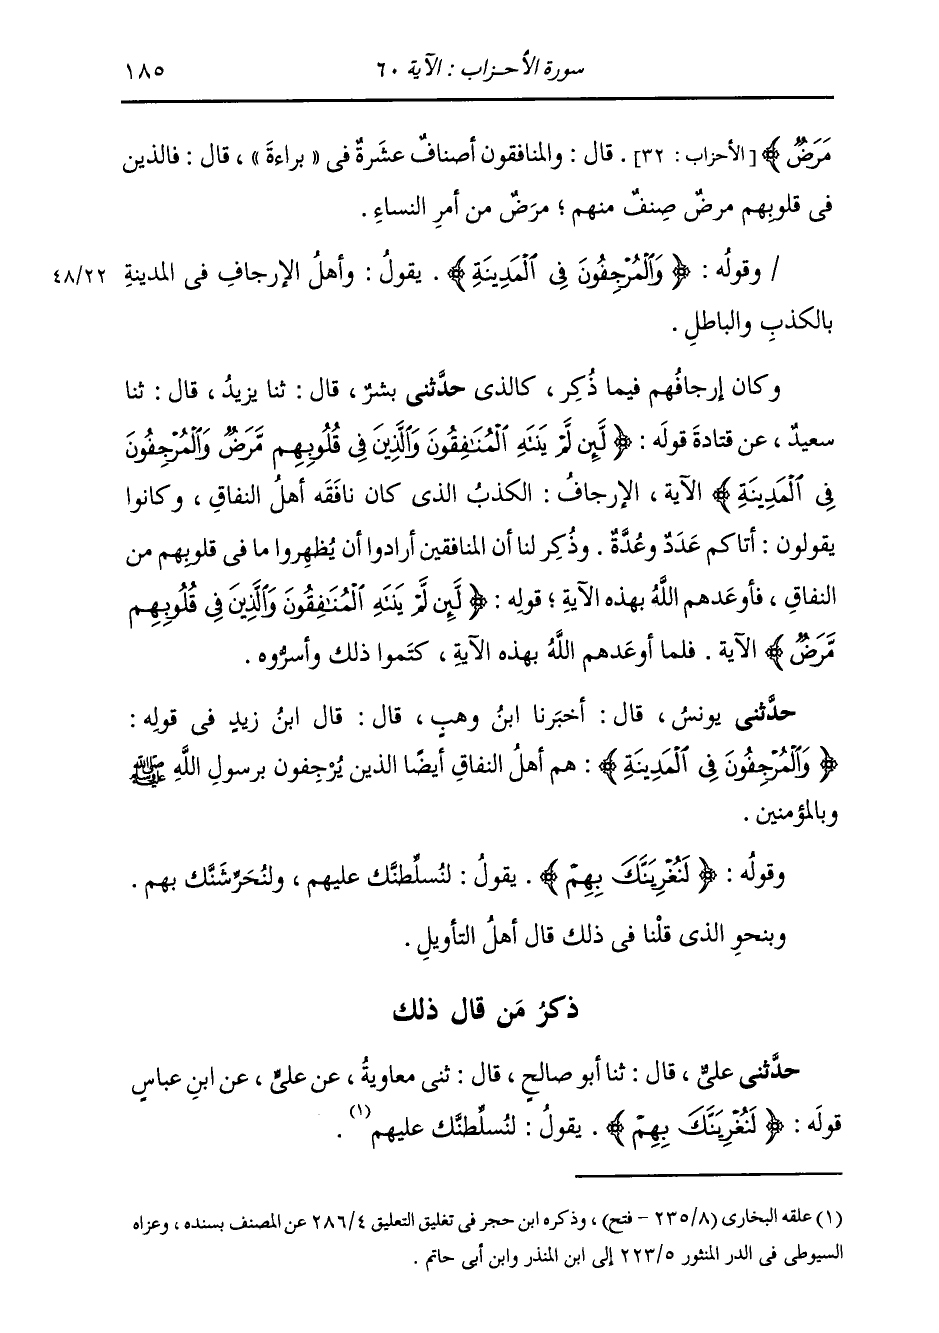 سورة الأحزاب : الآية ٦٠
١٨٥
مَرَضٌ ﴾ [الأحزاب : ٣٢] . قال : والمنافقون أصنافٌ عشَرةٌ فى « براءةَ » ، قال : فالذين
فى قلوبِهم مرضٌ صِنفٌ منهم ؛ مرَضٌ من أمرِ النساءِ .
/ وقولُه : ﴿ وَٱلْمُرْجِفُونَ فِى ٱلْمَدِينَةِ ﴾ . يقولُ : وأهلُ الإرجافِ فى المدينةِ ٤٨/٢٢
بالكذبِ والباطلِ .
وكان إرجافُهم فيما ذُكِر ، كالذى حدَّثنى بشرٌ ، قال : ثنا يزيدُ ، قال : ثنا
سعيدٌ ، عن قتادةَ قولَه : ﴿ لَّئِن لَّمْ يَنتَهِ ٱلْمُنَـٰفِقُونَ وَٱلَّذِينَ فِى قُلُوبِهِم مَّرَضٌ وَٱلْمُرْجِفُونَ
فِى ٱلْمَدِينَةِ ﴾ الآية ، الإرجافُ : الكذبُ الذى كان نافَقَه أهلُ النفاقِ ، وكانوا
يقولون : أتاكم عَدَدٌ وعُدَّةٌ . وذُكِر لنا أن المنافقين أرادوا أن يُظهِروا ما فى قلوبِهم من
النفاقِ ، فأوعَدهم اللَّهُ بهذه الآيةِ ؛ قولِه : ﴿ لَّئِن لَّمْ يَنتَهِ ٱلْمُنَـٰفِقُونَ وَٱلَّذِينَ فِى قُلُوبِهِم
مَّرَضٌ ﴾ الآية . فلما أوعَدهم اللَّهُ بهذه الآيةِ ، كتَموا ذلك وأسرُّوه .
حدَّثنى يونسُ ، قال : أخبَرنا ابنُ وهبٍ ، قال : قال ابنُ زيدٍ فى قولِه :
﴿ وَٱلْمُرْجِفُونَ فِى ٱلْمَدِينَةِ ﴾ : هم أهلُ النفاقِ أيضًا الذين يُرْجِفون برسولِ اللَّهِ ﷺ
وبالمؤمنين .
وقولُه : ﴿ لَنُغْرِيَنَّكَ بِهِمْ ﴾ . يقولُ : لنُسلِّطنَّك عليهم ، ولنُحَرِّشَنَّك بهم .
وبنحوِ الذى قلْنا فى ذلك قال أهلُ التأويلِ .
ذكرُ مَن قال ذلك
حدَّثنى علىٌّ ، قال : ثنا أبو صالحٍ ، قال : ثنى معاويةُ ، عن علىٍّ ، عن ابنِ عباسٍ
قولَه : ﴿ لَنُغْرِيَنَّكَ بِهِمْ ﴾ . يقولُ : لنُسلِّطنَّك عليهم(١) .
(١) علقه البخارى (٢٣٥/٨ - فتح) ، وذكره ابن حجر فى تغليق التعليق ٢٨٦/٤ عن المصنف بسنده ، وعزاه
السيوطى فى الدر المنثور ٢٢٣/٥ إلى ابن المنذر وابن أبى حاتم .